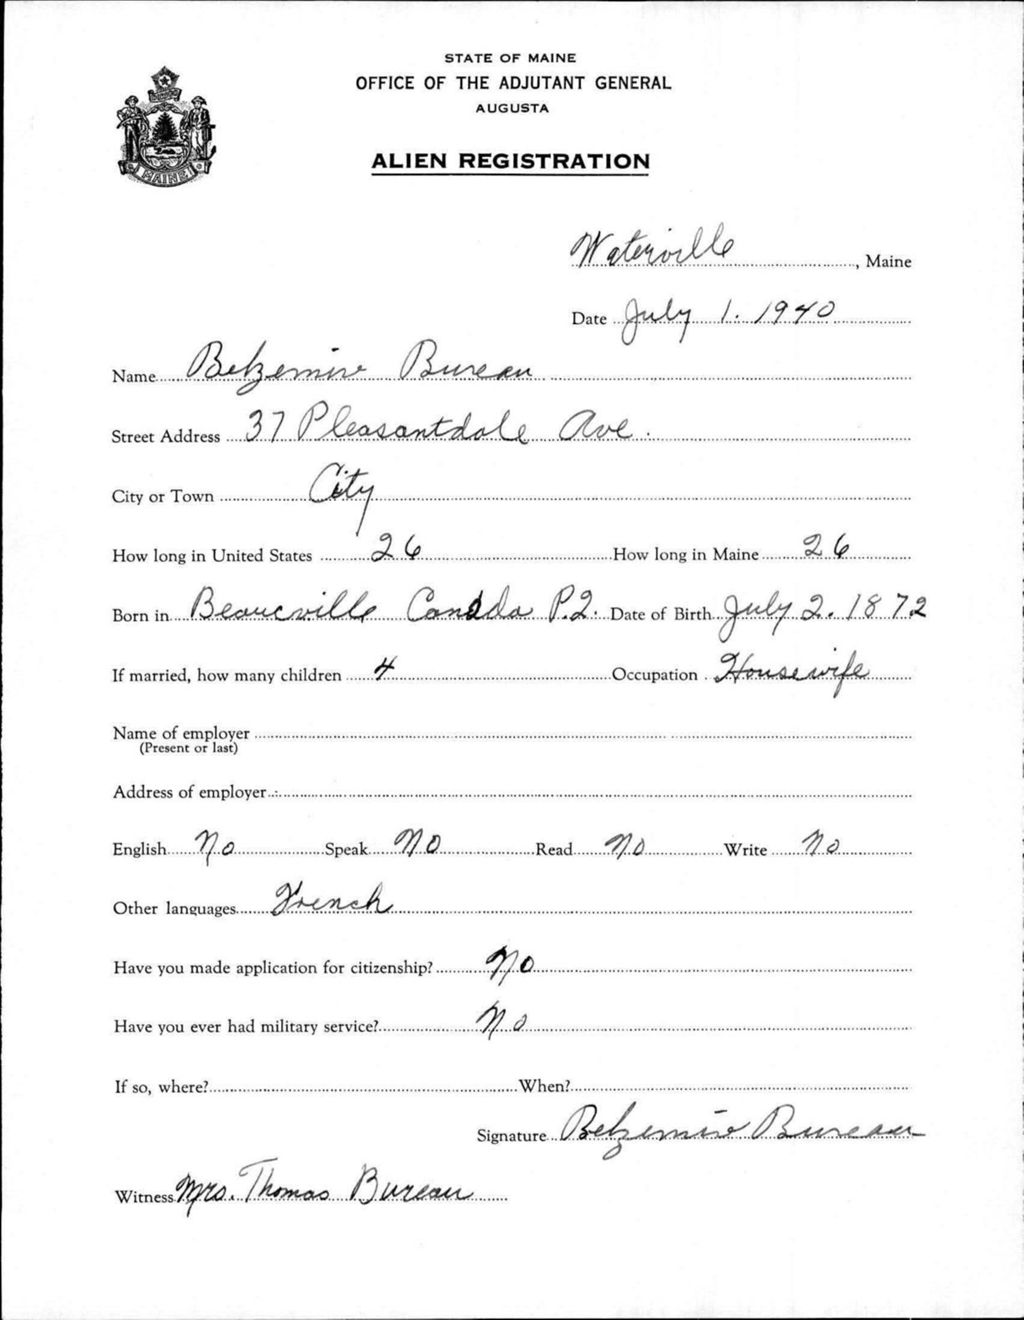 STATE OF MAINE
OFFICE OF THE ADJUTANT GENERAL
AUGUSTA
ALIEN REGISTRATION
MAINE
Waterville, Maine
Date July 1. 1940
Name Belzemire Bureau
Street Address 37 Pleasantdale Ave.
City or Town City
How long in United States 26 How long in Maine 26
Born in Beauceville Canada P.Q. Date of Birth July 2. 1872
If married, how many children 4 Occupation Housewife
Name of employer
(Present or last)
Address of employer
English No Speak No Read No Write No
Other languages French
Have you made application for citizenship? No
Have you ever had military service? No
If so, where? When?
Signature Belzemire Bureau
Witness Mrs. Thomas Bureau